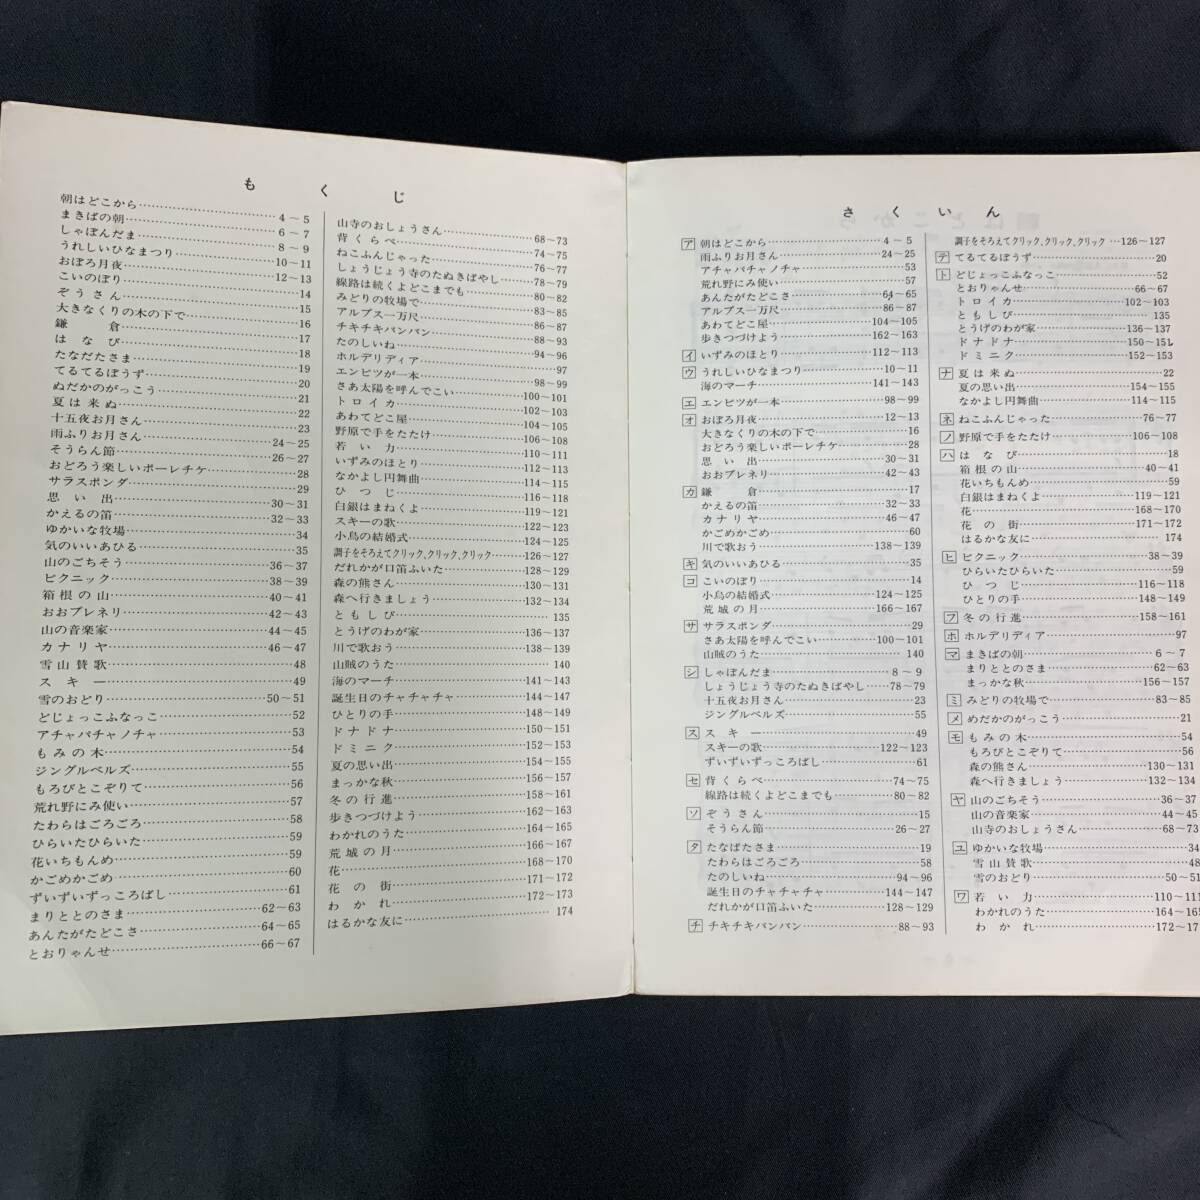 もくじ
朝はどこから………4～5
まきばの朝………6～7
しゃぼんだま………8～9
うれしいひなまつり………10～11
おぼろ月夜………12～13
こいのぼり………14
ぞうさん………15
大きなくりの木の下で………16
鎌倉………17
はなび………18
たなだたさま………19
てるてるぼうず………20
ぬだかのがっこう………21
夏は来ぬ………22
十五夜お月さん………23
雨ふりお月さん………24～25
そうらん節………26～27
おどろう楽しいポーレチケ………28
サラスポンダ………29
思い出………30～31
かえるの笛………32～33
ゆかいな牧場………34
気のいいあひる………35
山のごちそう………36～37
ピクニック………38～39
箱根の山………40～41
おおブレネリ………42～43
山の音楽家………44～45
カナリヤ………46～47
雪山賛歌………48
スキー………49
雪のおどり………50～51
どじょっこふなっこ………52
アチャパチャノチャ………53
もみの木………54
ジングルベルズ………55
もろびとこぞりて………56
荒れ野にみ使い………57
たわらはごろごろ………58
ひらいたひらいた………59
花いちもんめ………59
かごめかごめ………60
ずいずいずっころばし………61
まりととのさま………62～63
あんたがたどこさ………64～65
とおりゃんせ………66～67
山寺のおしょうさん………68～73
背くらべ………74～75
ねこふんじゃった………76～77
しょうじょう寺のたぬきばやし………78～79
線路は続くよどこまでも………80～82
みどりの牧場で………83～85
アルプス一万尺………86～87
チキチキバンバン………88～93
たのしいね………94～96
ホルデリディア………97
エンピツが一本………98～99
さあ太陽を呼んでこい………100～101
トロイカ………102～103
あわてどこ屋………104～105
野原で手をたたけ………106～108
若い力………110～111
いずみのほとり………112～113
なかよし円舞曲………114～115
ひつじ………116～118
白銀はまねくよ………119～121
スキーの歌………122～123
小鳥の結婚式………124～125
調子をそろえてクリック、クリック、クリック………126～127
だれかが口笛ふいた………128～129
森の熊さん………130～131
森へ行きましょう………132～134
ともしび………135
とうげのわが家………136～137
川で歌おう………138～139
山賊のうた………140
海のマーチ………141～143
誕生日のチャチャチャ………144～147
ひとりの手………148～149
ドナドナ………150～151
ドミニク………152～153
夏の思い出………154～155
まっかな秋………156～157
冬の行進………158～161
歩きつづけよう………162～163
わかれのうた………164～165
荒城の月………166～167
花………168～170
花の街………171～172
わかれ………172～173
はるかな友に………174
さくいん
ア 朝はどこから………4～5
雨ふりお月さん………24～25
アチャパチャノチャ………53
荒れ野にみ使い………57
あんたがたどこさ………64～65
アルプス一万尺………86～87
あわてどこ屋………104～105
歩きつづけよう………162～163
イ いずみのほとり………112～113
ウ うれしいひなまつり………10～11
海のマーチ………141～143
エ エンピツが一本………98～99
オ おぼろ月夜………12～13
大きなくりの木の下で………16
おどろう楽しいポーレチケ………28
思い出………30～31
おおブレネリ………42～43
カ 鎌倉………17
かえるの笛………32～33
カナリヤ………46～47
かごめかごめ………60
川で歌おう………138～139
キ 気のいいあひる………35
コ こいのぼり………14
小鳥の結婚式………124～125
荒城の月………166～167
サ サラスポンダ………29
さあ太陽を呼んでこい………100～101
山賊のうた………140
シ しゃぼんだま………8～9
しょうじょう寺のたぬきばやし………78～79
十五夜お月さん………23
ジングルベルズ………55
ス スキー………49
スキーの歌………122～123
ずいずいずっころばし………61
セ 背くらべ………74～75
線路は続くよどこまでも………80～82
ソ ぞうさん………15
そうらん節………26～27
タ たなばたさま………19
たわらはごろごろ………58
たのしいね………94～96
誕生日のチャチャチャ………144～147
だれかが口笛ふいた………128～129
チ チキチキバンバン………88～93
調子をそろえてクリック、クリック、クリック………126～127
テ てるてるぼうず………20
ト どじょっこふなっこ………52
とおりゃんせ………66～67
トロイカ………102～103
ともしび………135
とうげのわが家………136～137
ドナドナ………150～151
ドミニク………152～153
ナ 夏は来ぬ………22
夏の思い出………154～155
なかよし円舞曲………114～115
ネ ねこふんじゃった………76～77
ノ 野原で手をたたけ………106～108
ハ はなび………18
箱根の山………40～41
花いちもんめ………59
白銀はまねくよ………119～121
花………168～170
花の街………171～172
はるかな友に………174
ヒ ピクニック………38～39
ひらいたひらいた………59
ひつじ………116～118
ひとりの手………148～149
フ 冬の行進………158～161
ホ ホルデリディア………97
マ まきばの朝………6～7
まりととのさま………62～63
まっかな秋………156～157
ミ みどりの牧場で………83～85
メ めだかのがっこう………21
モ もみの木………54
もろびとこぞりて………56
森の熊さん………130～131
森へ行きましょう………132～134
ヤ 山のごちそう………36～37
山の音楽家………44～45
山寺のおしょうさん………68～73
ユ ゆかいな牧場………34
雪山賛歌………48
雪のおどり………50～51
ワ 若い力………110～111
わかれのうた………164～165
わかれ………172～17